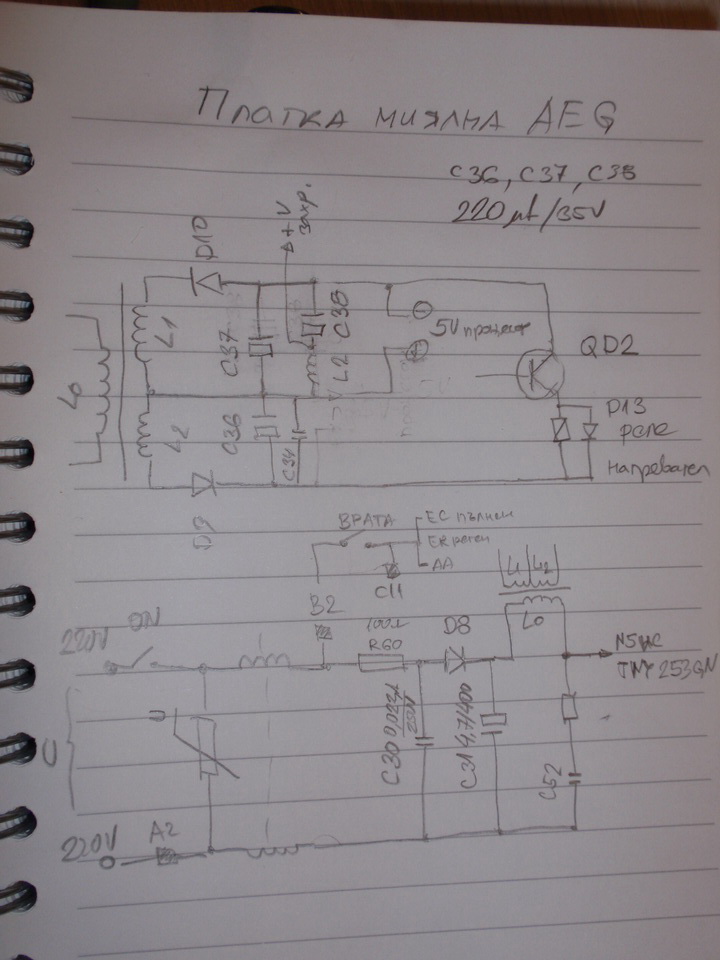 Платка миялна AEG
C36, C37, C38
220μf/35V
D10
+V захр.
L0
L1
C37
C38
L2
5V процесор
QD2
L2
C36
C34
D13
реле
нагревател
D9
ВРАТА
EC пълнен
ER реген
AA
C11
B2
L1 L2
L0
220V
ON
100Ω
R60
D8
N5 ИС
TNY 253GN
U
U
C30 0,023μ
250V
C31 4,7/400
C52
220V
A2